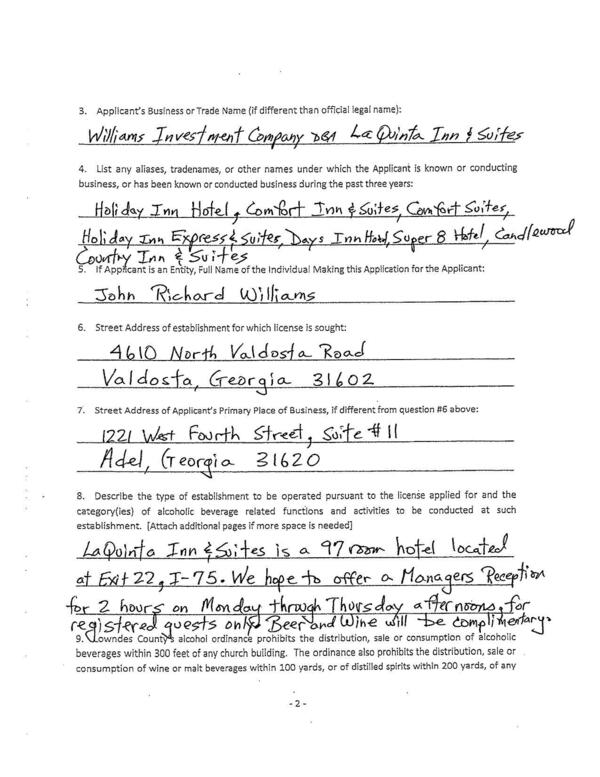 3. Applicant's Business or Trade Name (if different than official legal name):
Williams Investment Company DBA La Quinta Inn & Suites
4. List any aliases, tradenames, or other names under which the Applicant is known or conducting
business, or has been known or conducted business during the past three years:
Holiday Inn Hotel, Comfort Inn & Suites, Comfort Suites,
Holiday Inn Express & Suites, Days Inn Hotel, Super 8 Hotel, Candlewood
Country Inn & Suites
5. If Applicant is an Entity, Full Name of the Individual Making this Application for the Applicant:
John Richard Williams
6. Street Address of establishment for which license is sought:
4610 North Valdosta Road
Valdosta, Georgia 31602
7. Street Address of Applicant's Primary Place of Business, if different from question #6 above:
1221 West Fourth Street, Suite # 11
Adel, Georgia 31620
8. Describe the type of establishment to be operated pursuant to the license applied for and the
category(ies) of alcoholic beverage related functions and activities to be conducted at such
establishment. [Attach additional pages if more space is needed]
LaQuinta Inn & Suites is a 97 room hotel located
at Exit 22, I-75. We hope to offer a Managers Reception
for 2 hours on Monday through Thursday afternoons, for
registered guests only. Beer and Wine will be complimentary.
9. Lowndes County's alcohol ordinance prohibits the distribution, sale or consumption of alcoholic
beverages within 300 feet of any church building. The ordinance also prohibits the distribution, sale or
consumption of wine or malt beverages within 100 yards, or of distilled spirits within 200 yards, of any
- 2 -